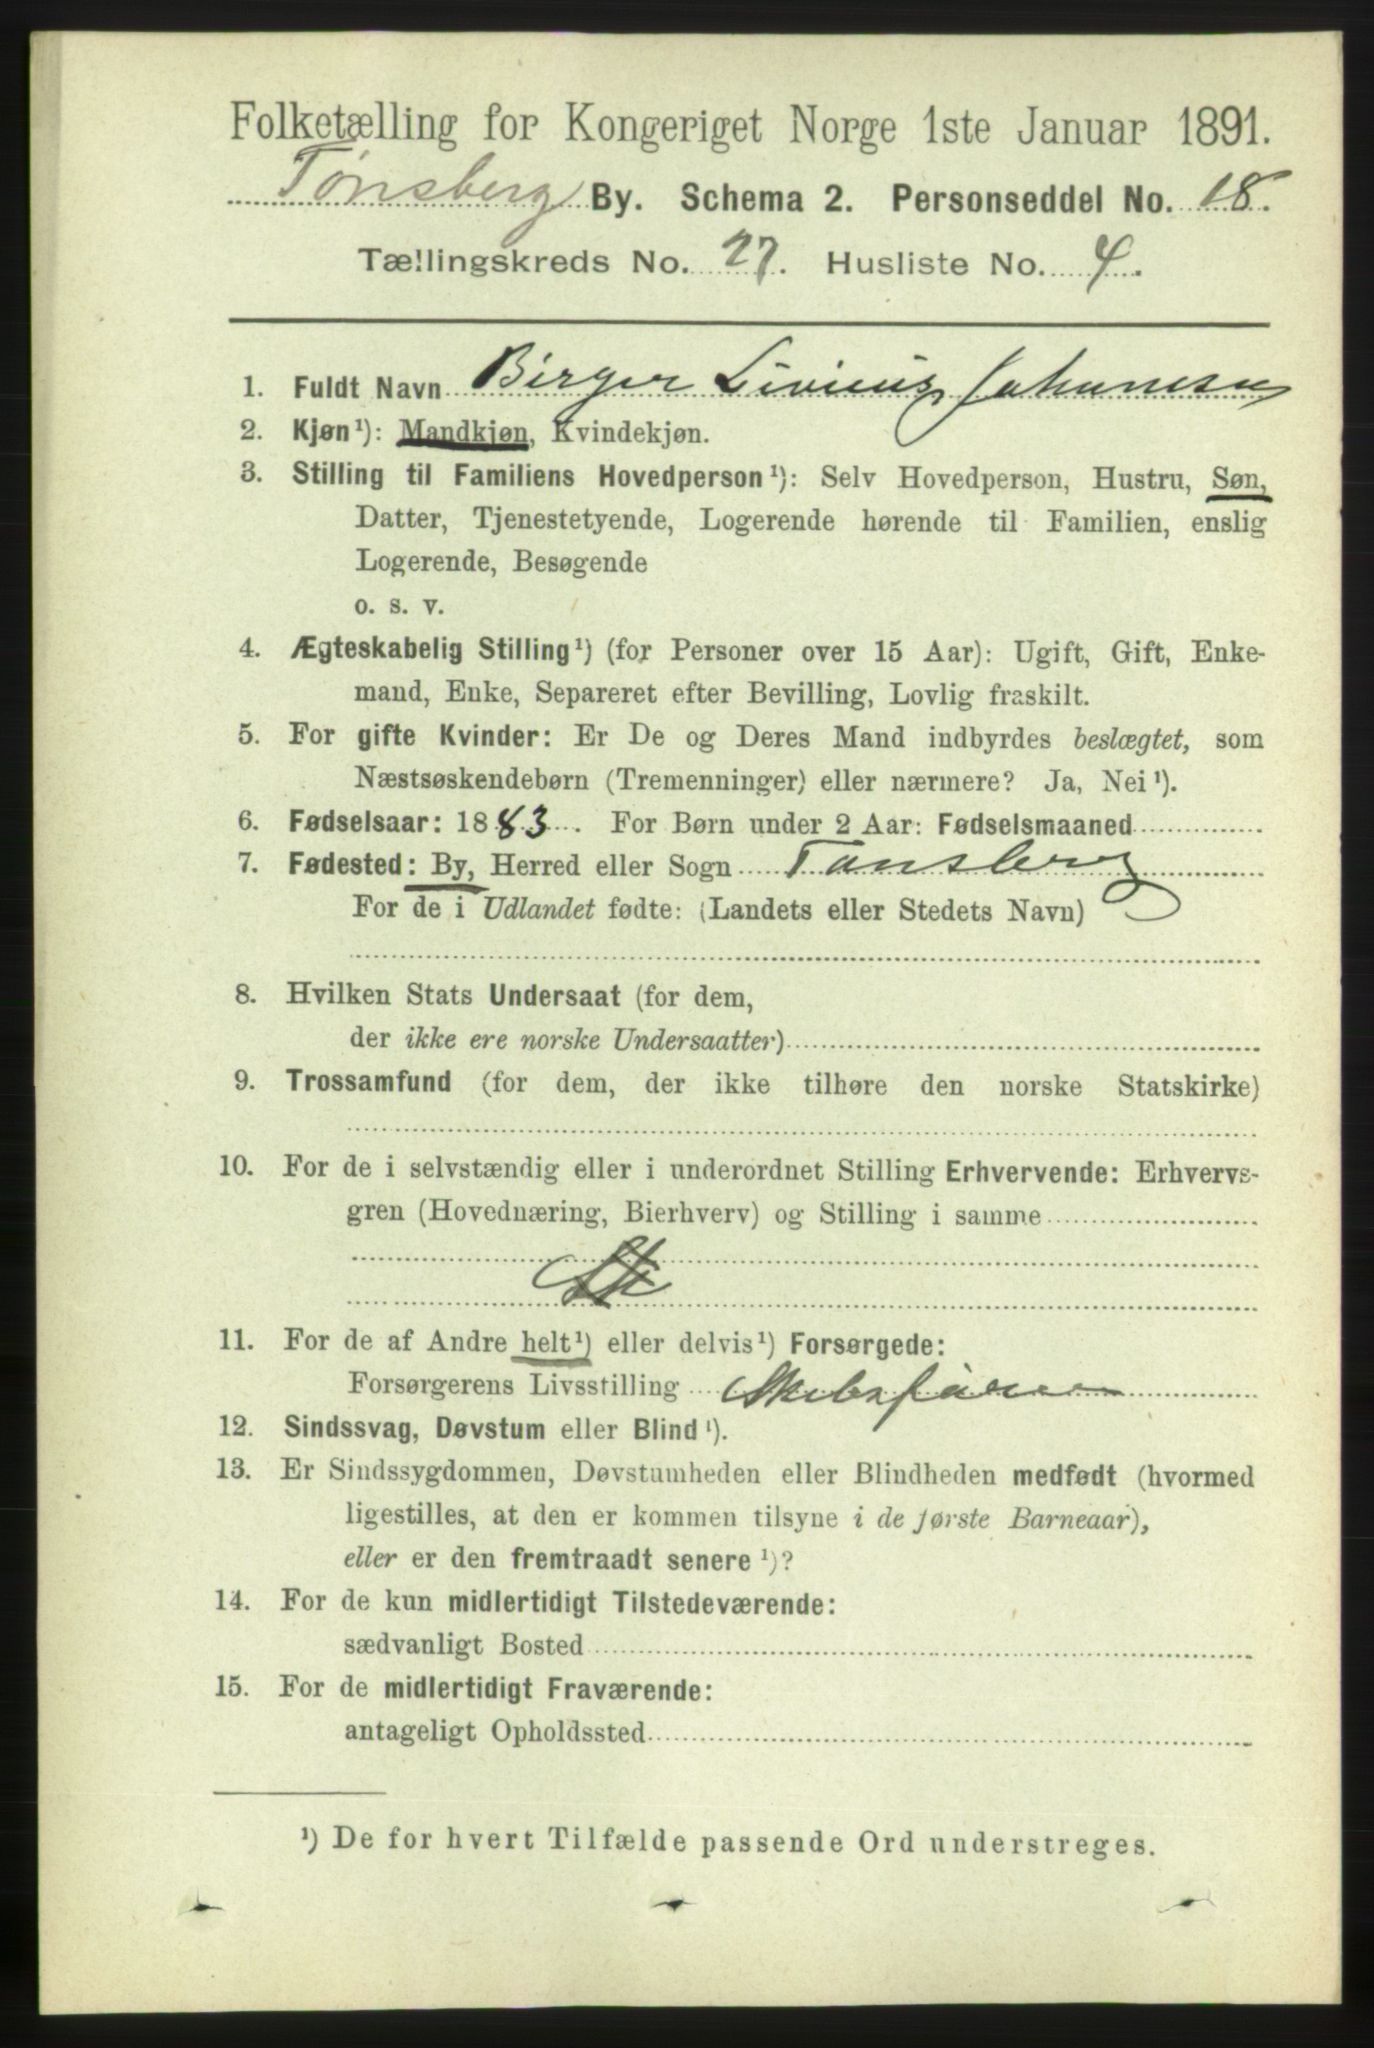 Folketælling for Kongeriget Norge 1ste Januar 1891.
Tønsberg By. Schema 2. Personseddel No. 18.
Tællingskreds No. 27. Husliste No. 4.
1. Fuldt Navn Birger Livius Johansen
2. Kjøn¹): Mandkjøn, Kvindekjøn.
3. Stilling til Familiens Hovedperson¹): Selv Hovedperson, Hustru, Søn,
Datter, Tjenestetyende, Logerende hørende til Familien, enslig
Logerende, Besøgende
o. s. v.
4. Ægteskabelig Stilling¹) (for Personer over 15 Aar): Ugift, Gift, Enke-
mand, Enke, Separeret efter Bevilling, Lovlig fraskilt.
5. For gifte Kvinder: Er De og Deres Mand indbyrdes beslægtet, som
Næstsøskendebørn (Tremenninger) eller nærmere? Ja, Nei¹).
6. Fødselsaar: 1883. For Børn under 2 Aar: Fødselsmaaned
7. Fødested: By, Herred eller Sogn Tønsberg
For de i Udlandet fødte: (Landets eller Stedets Navn)
8. Hvilken Stats Undersaat (for dem,
der ikke ere norske Undersaatter)
9. Trossamfund (for dem, der ikke tilhøre den norske Statskirke)
10. For de i selvstændig eller i underordnet Stilling Erhvervende: Erhvervs-
gren (Hovednæring, Bierhverv) og Stilling i samme
11. For de af Andre helt¹) eller delvis¹) Forsørgede:
Forsørgerens Livsstilling Skibsfører
12. Sindssvag, Døvstum eller Blind¹).
13. Er Sindssygdommen, Døvstumheden eller Blindheden medfødt (hvormed
ligestilles, at den er kommen tilsyne i de første Barneaar),
eller er den fremtraadt senere¹)?
14. For de kun midlertidigt Tilstedeværende:
sædvanligt Bosted
15. For de midlertidigt Fraværende:
antageligt Opholdssted
¹) De for hvert Tilfælde passende Ord understreges.